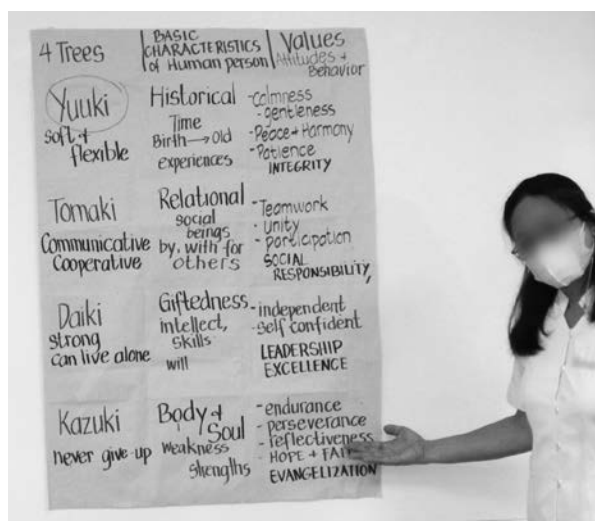 4 Trees
BASIC
CHARACTERISTICS
of Human person
Values
Attitudes +
Behavior
Yuuki
soft +
flexible
Historical
Time
Birth → Old
experiences
- Calmness
- gentleness
- Peace + Harmony
- Patience
INTEGRITY
Tomaki
Communicative
Cooperative
Relational
social
beings
by, with for
others
- Teamwork
- Unity
- participation
SOCIAL
RESPONSIBILITY,
Daiki
strong
can live alone
Giftedness
intellect,
skills
will
- independent
- self confident
LEADERSHIP
EXCELLENCE
Kazuki
never give up
Body +
Soul
weakness
strengths
- endurance
- perseverance
- reflectiveness
- HOPE +
EVANGELIZATION